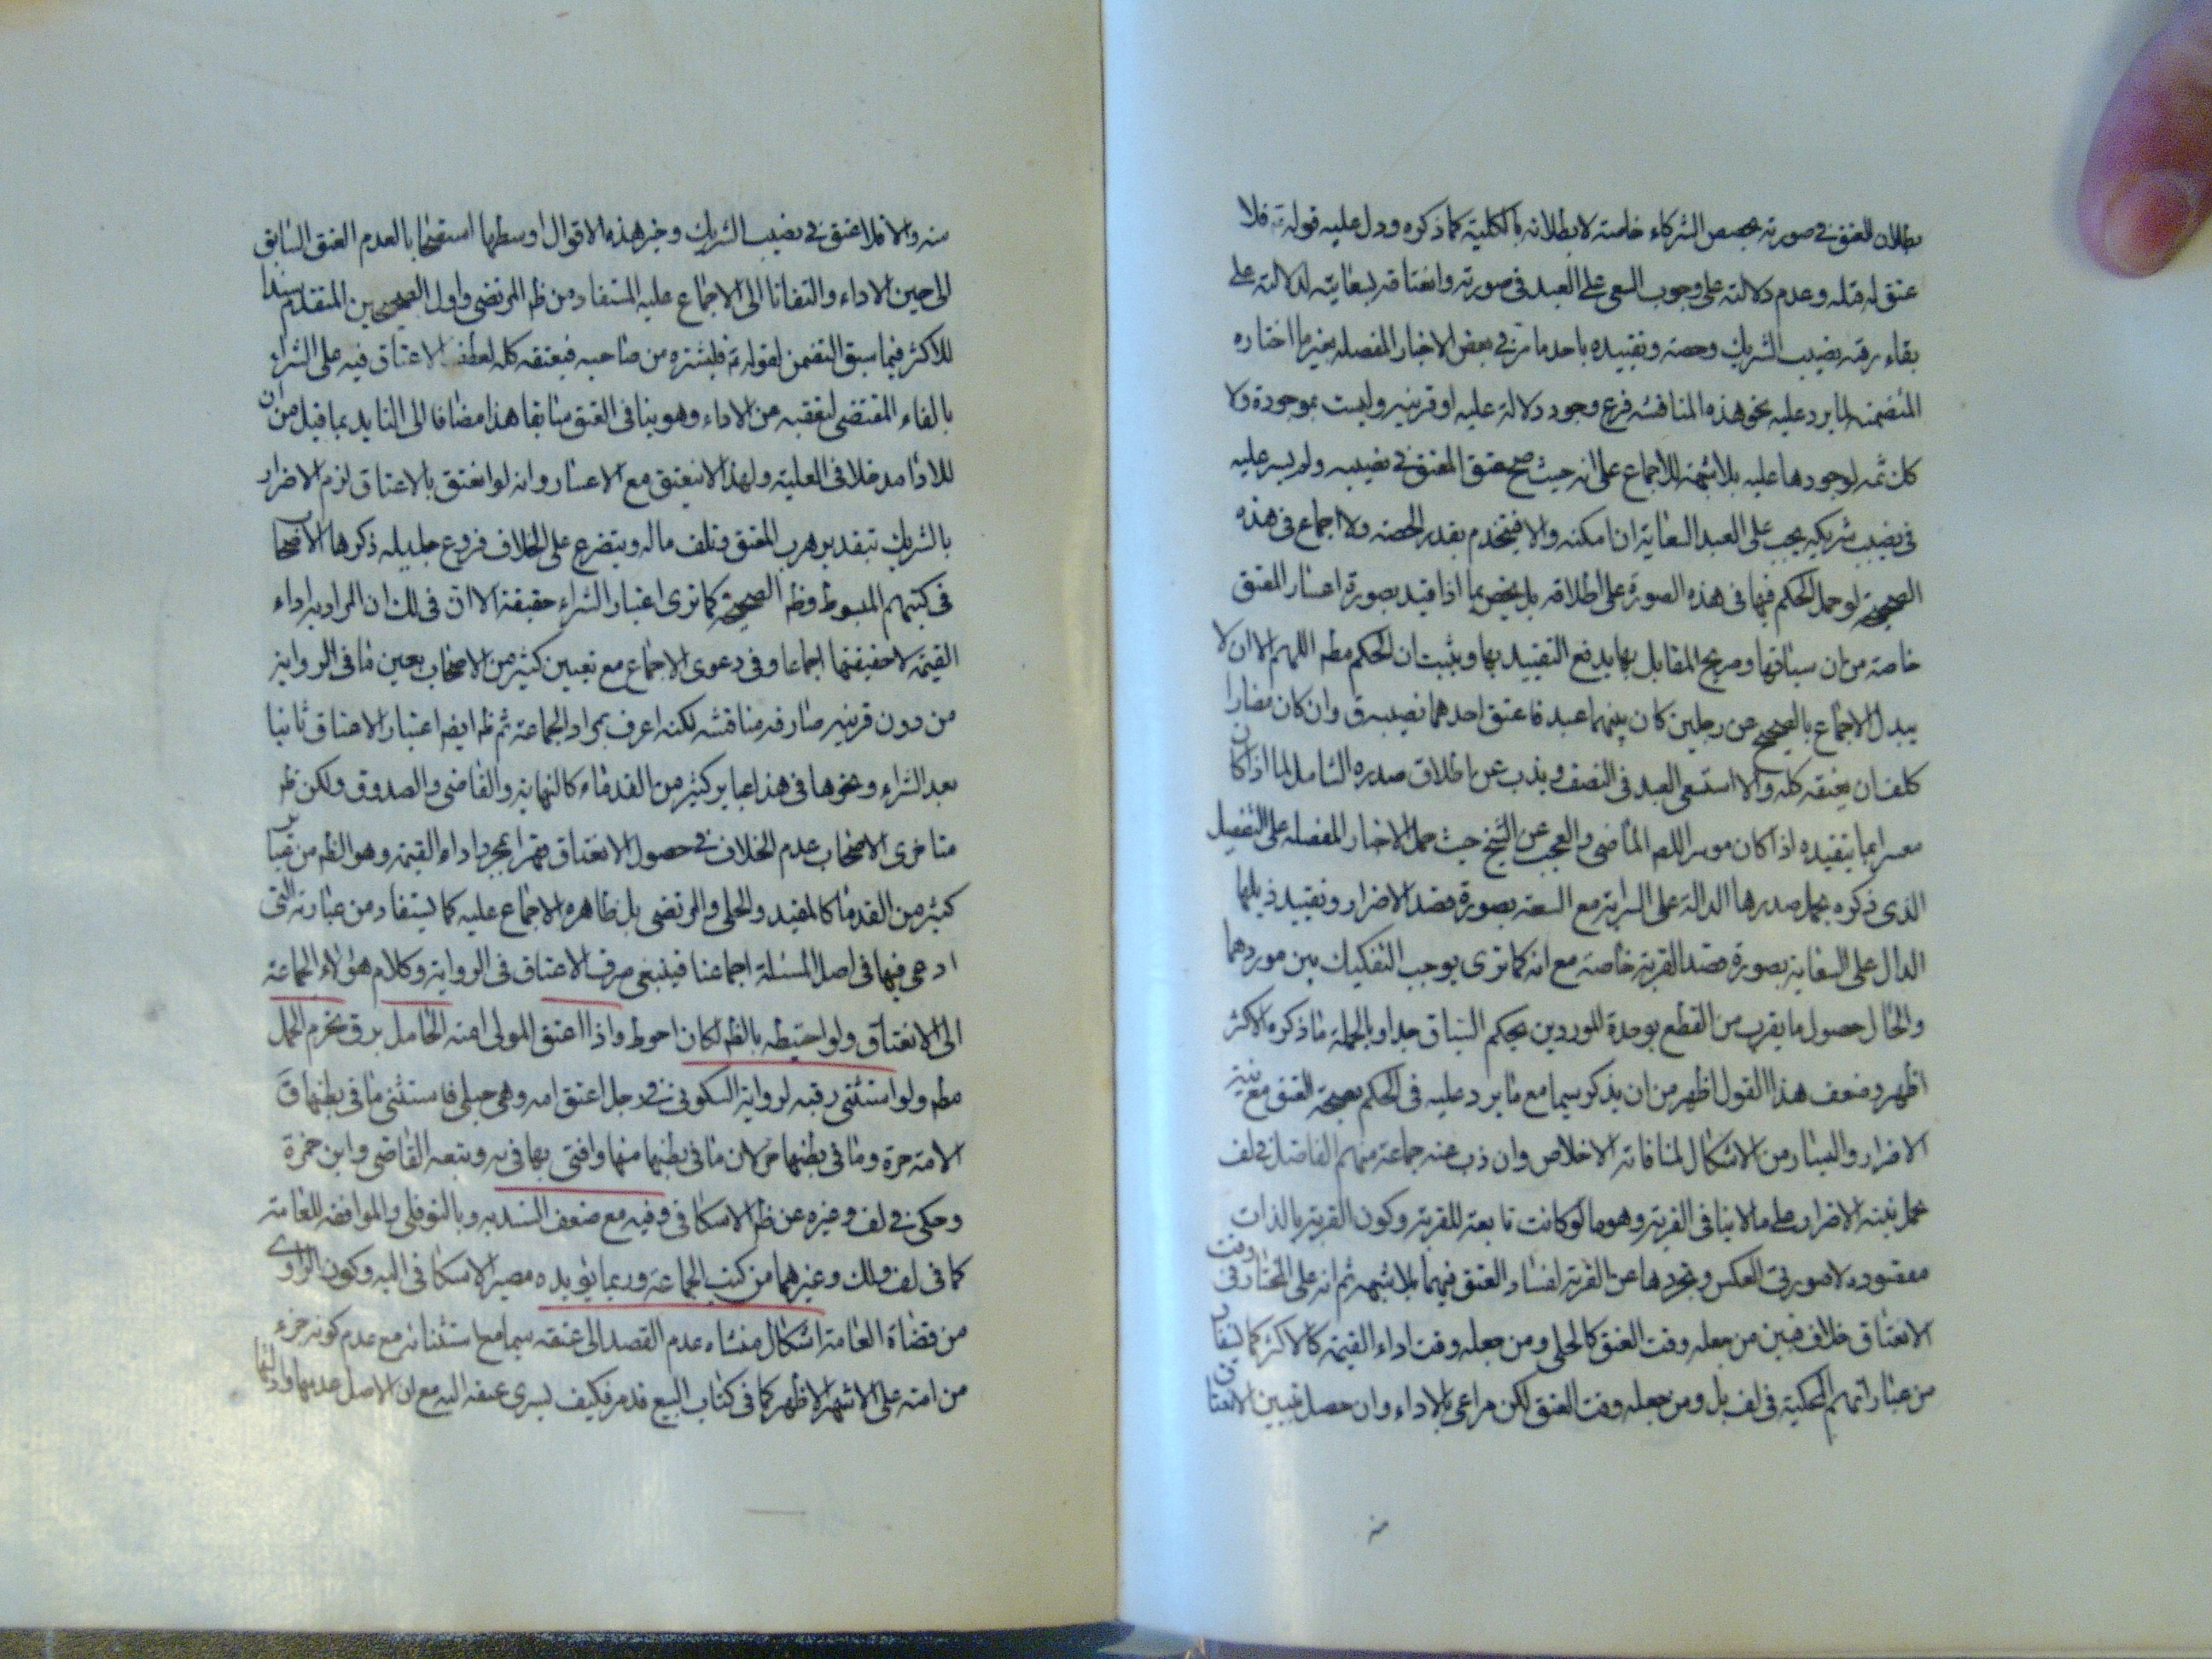 بطلان العتق في صورته بحصص الشركاء خاصة لا بطلانه بالكلية كما ذكره ودل عليه قوله ع فلا
عتق له قبله وعدم دلالته على وجوب السعي على العبد في صورته وانعتاقه بسعايته لدلالته على
بقاء رقية نصيب الشريك وحصته وتقييده باحد ما مر في بعض الاخبار المفصلة بغير ما اختاره
المتضمنة لما يرد عليه نحو هذه المناقشة فرع وجود دلالة عليه او قرينة وليست بموجودة ولا
كل ثمة لوجودها عليه بلا شبهة للاجماع على انه حيث صح عتق المعتق في نصيبه ولم يسر عليه
في نصيب شريكه يجب على العبد السعاية ان امكنه والا فيستخدم بقدر الحصة ولا اجماع في هذه
الصحيحة لو حمل الحكم فيها في هذه الصورة على اطلاقه بل يخص بما اذا قيد بصورة اعسار المعتق
خاصة من ان سياقها وصريح المقابل بها يدفع التقييد بها ويثبت ان الحكم مطم اللهم الا ان لا
يبدل الاجماع بالصحيح عن رجلين كان بينهما عبد فاعتق احدهما نصيبه ق وان كان مضارا
كلف ان يعتقه كله والا استسعى العبد في النصف ويذب عن اطلاق صدره الشامل لما اذا كان
معسرا بما يقيده اذا كان موسرا للصحيح الماضي والعجب عن الشيخ حيث حمل الاخبار المفصلة على التفصيل
الذي ذكره بحمل صدرها الدالة على السراية مع السعة بصورة قصد الاضرار وتقييد ذيلها
الدال على السعاية بصورة قصد القربة خاصة مع انه كما ترى يوجب التفكيك بين موردهما
والحال حصول ما يقرب من القطع بوحدة الموردين بحكم السياق جدا وبالجملة ما ذكره الاكثر
اظهر وضعف هذا القول اظهر من ان يذكر سيما مع ما يرد عليه في الحكم بصحة العتق مع نية
الاضرار واليسار من الاشكال لمنافاته الاخلاص وان ذب عنه جماعة منهم الفاضل في لف
بحمل نية الاضرار على ما لا ينافي القربة وهو ما لو كانت تابعة للقربة وكون القربة بالذات
مقصوده لا صورتي العكس وتجردها عن القربة لفساد العتق فيهما بلا شبهة ثم انه على المختار في وقت
الانعتاق خلاف فبين من جعله وقت العتق كالحلي ومن جعله وقت اداء القيمة كالاكثر كما يستفاد
من عباراتهم المحكية في لف بل ومن جعله وقت العتق لكن مراعى بالاداء وان حصل تبيين الانعتاق
منه
منه والا فلا عتق في نصيب الشريك وخير هذه الاقوال اوسطها استصحابا لعدم العتق السابق
الى حين الاداء والتفاتا الى الاجماع عليه المستفاد من ظم المرتضى واول الصحيحين المتقدم سندا
للاكثر فيما سبق المتضمن لقوله ع فليشتره من صاحبه فيعتقه كله لعطف الاعتاق فيه على الشراء
بالفاء المقتضي لتعقبه من الاداء وهو ينافي العتق سابقا هذا مضافا الى التايد بما قيل من ان
للاداء مدخلا في العلية ولهذا لا ينعتق مع الاعسار وانه لو انعتق بالاعتاق لزم الاضرار
بالشريك بتقدير هرب المعتق وتلف ماله ويتفرع على الخلاف فروع جليلة ذكرها الاصحاب
في كتبهم المبسوطة وظم الصحيحة كما ترى اعتبار الشراء حقيقة الا ان في لك ان المراد به اداء
القيمة لا حقيقتها اجماعا وفي دعوى الاجماع مع تعبير كثير من الاصحاب بعين ما في الرواية
من دون قرينة صارفة مناقشة لكنه اعرف بمراد الجماعة ثم ظم ايضا اعتبار الاعتاق ثانيا
بعد الشراء ونحوها في هذا عباير كثير من القدماء كالنهاية والقاضي والصدوق ولكن ظم
متاخري الاصحاب عدم الخلاف في حصول الانعتاق قهرا بمجرد اداء القيمة وهو الظم من عباير
كثير من القدماء كالمفيد والحلي والمرتضى بل ظاهره الاجماع عليه كما يستفاد من عبارته التي
ادعى فيها في اصل المسئلة اجماعنا فينبغي صرف الاعتاق في الرواية وكلام هؤلاء الجماعة
الى الانعتاق ولو احتيط بالظم لكان احوط واذا اعتق المولى امته الحامل برق تحرم الحمل
مطم ولو استثنى رقيه لرواية السكوني في رجل اعتق امه وهي حبلى فاستثنى ما في بطنها ق
الامة حرة وما في بطنها حر لان ما في بطنها منها وافتى بها في يه وتبعه القاضي وابن حمزة
وحكي في لف وغيره عن ظم الاسكافي وفيه مع ضعف السند به وبالنوفلي والموافقة للعامة
كما في لف ولك وغيرهما من كتب الجماعة وربما يؤيده مصير الاسكافي اليه وكون الراوي
من قضاة العامة اشكال منشاه عدم القصد الى عتقه سيما مع استثنائه مع عدم كونه جزء
من امته على الاشهر الاظهر كما في كتاب البيع قد مر فكيف يسري عتقه اليه مع ان الاصل عدمها